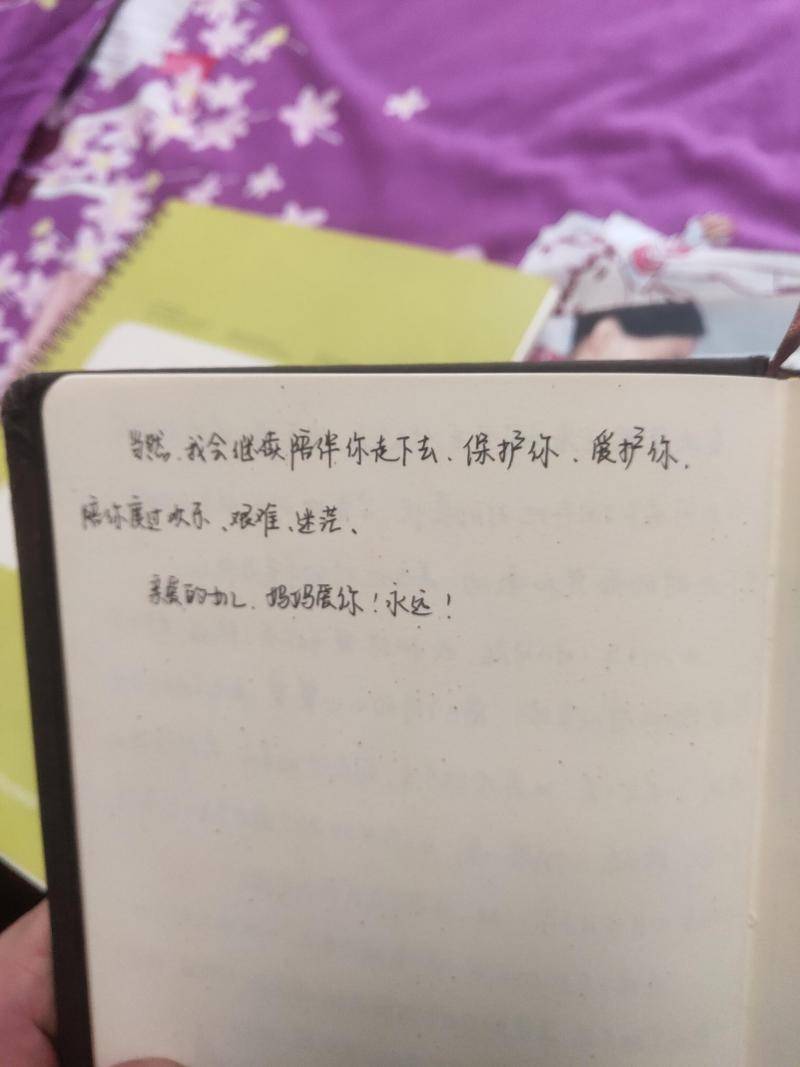 当然、我会继续陪伴你走下去、保护你、爱护你、
陪你度过欢乐、艰难、迷茫、
亲爱的九儿、妈妈爱你！永远！